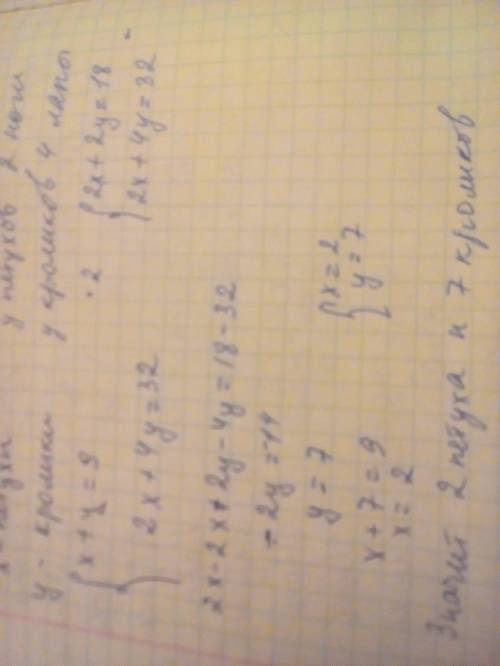 x - петухи у петухов 2 ноги
y - кролики у кроликов 4 лапы
{ x + y = 9 · 2 { 2x + 2y = 18
2x + 4y = 32 2x + 4y = 32 -
2x - 2x + 2y - 4y = 18 - 32
- 2y = -14
y = 7 { x = 2
y = 7
x + 7 = 9
x = 2
Значит 2 петуха и 7 кроликов